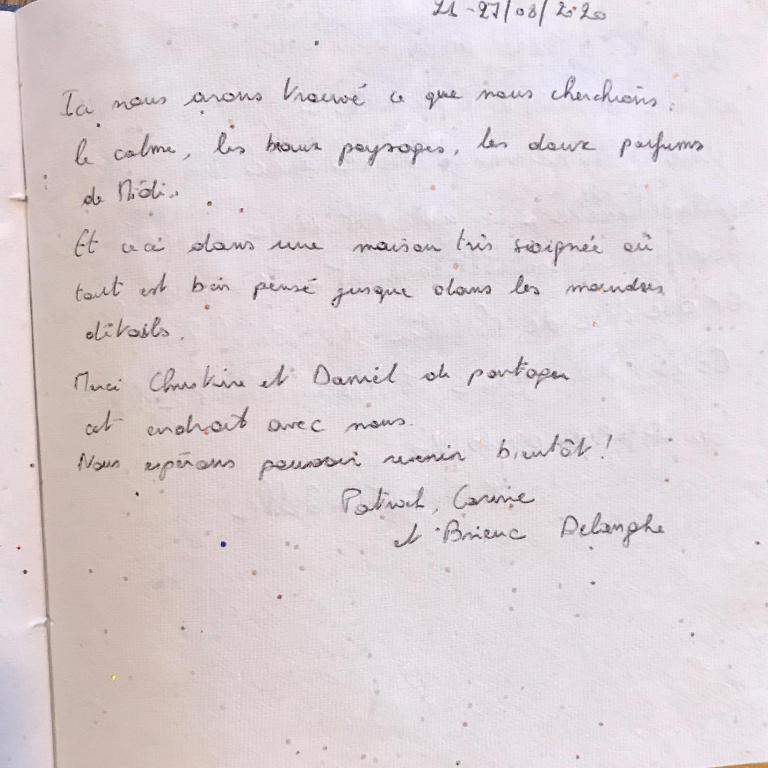 21-27/08/2020
Ici nous avons trouvé ce que nous cherchions :
le calme, les beaux paysages, les doux parfums
de Midi..
Et ceci dans une maison très soignée où
tout est bien pensé jusque dans les moindres
détails.
Merci Christine et Daniël de partager
cet endroit avec nous.
Nous espérons pouvoir revenir bientôt !
Patrick, Carine
et Brieuc Delanghe